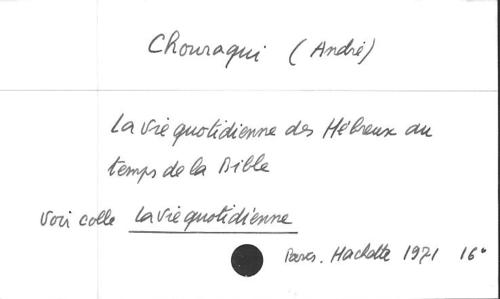 Chouraqui (André)
La vie quotidienne des Hébreux au
temps de la Bible
Voir colle La vie quotidienne
Paris. Hachette 1971 16°